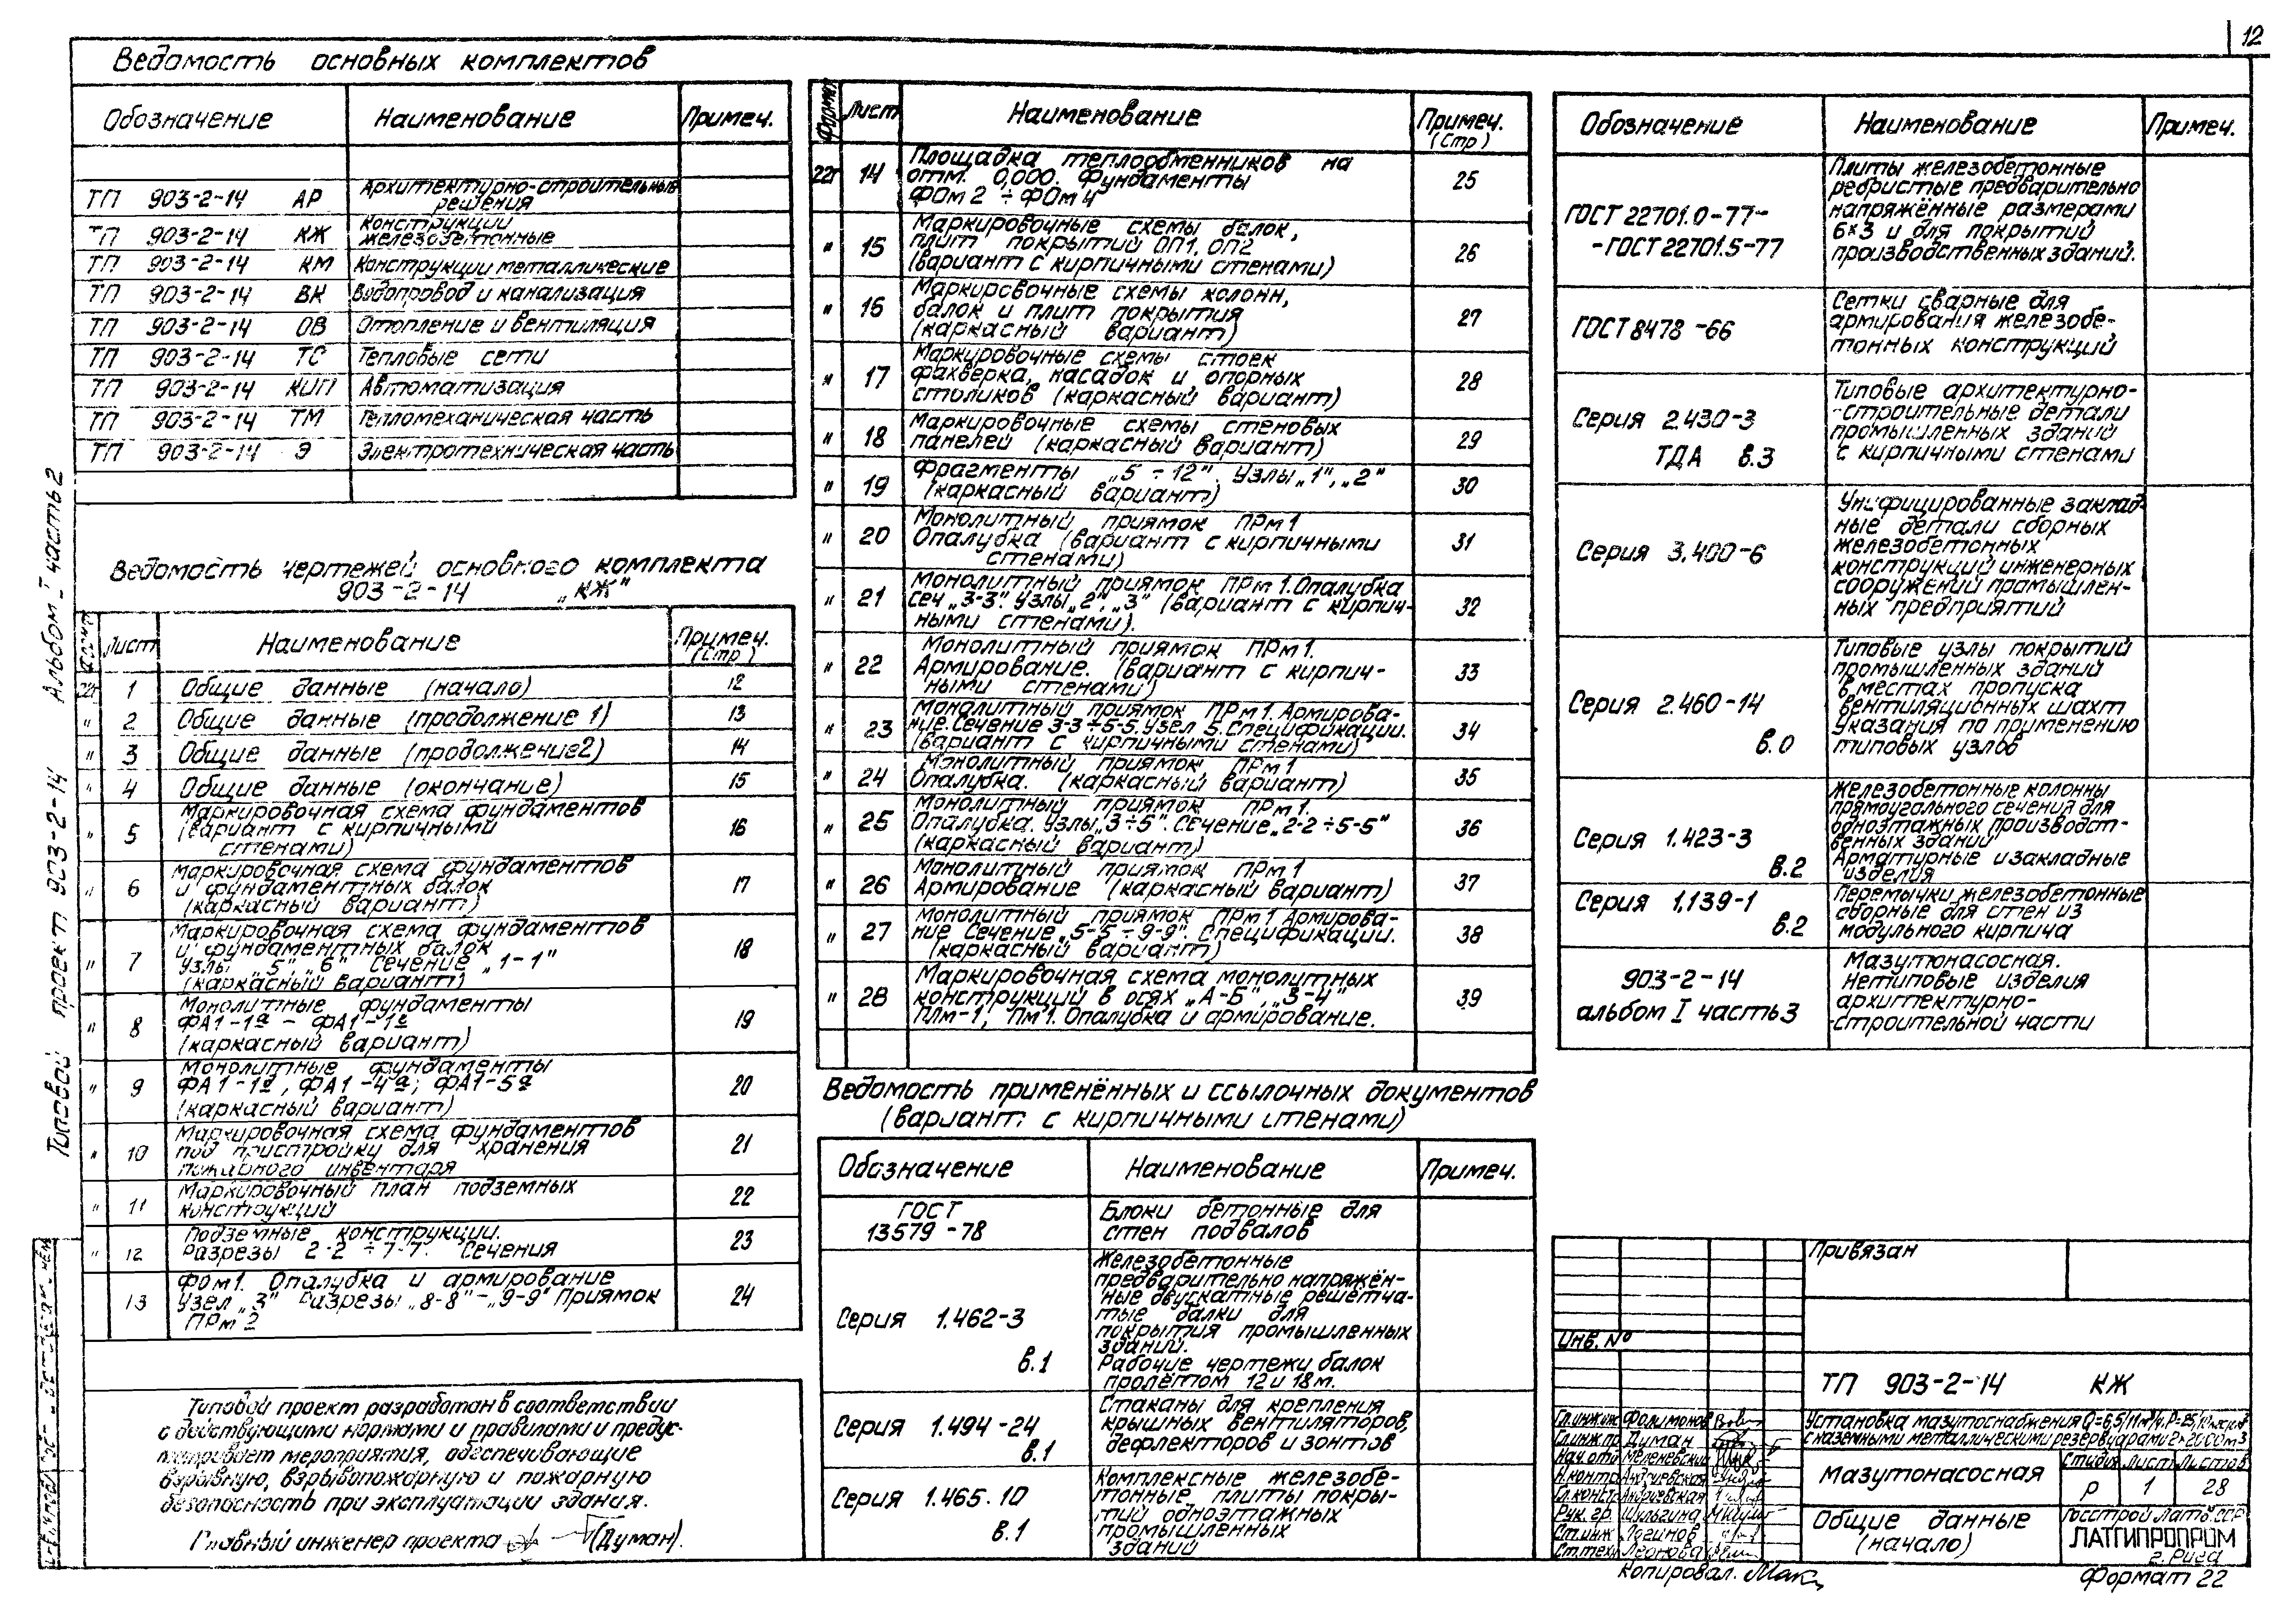 12
Ведомость основных комплектов
Обозначение Наименование Примеч.
ТП 903-2-14 АР Архитектурно-строительные
решения
ТП 903-2-14 КЖ Конструкции
железобетонные
ТП 903-2-14 КМ Конструкции металлические
ТП 903-2-14 ВК Водопровод и канализация
ТП 903-2-14 ОВ Отопление и вентиляция
ТП 903-2-14 ТС Тепловые сети
ТП 903-2-14 КИП Автоматизация
ТП 903-2-14 ТМ Тепломеханическая часть
ТП 903-2-14 Э Электротехническая часть
Ведомость чертежей основного комплекта
903-2-14 „КЖ"
Формат Лист Наименование Примеч.
(Стр)
22г 1 Общие данные (начало) 12
" 2 Общие данные (продолжение 1) 13
" 3 Общие данные (продолжение 2) 14
" 4 Общие данные (окончание) 15
Маркировочная схема фундаментов
" 5 (вариант с кирпичными 16
стенами)
Маркировочная схема фундаментов
" 6 и фундаментных балок 17
(каркасный вариант)
Маркировочная схема фундаментов
и фундаментных балок
" 7 Узлы „5", „6" Сечение „1-1" 18
(каркасный вариант)
Монолитные фундаменты
" 8 ФА1-1а – ФА1-1г 19
(каркасный вариант)
Монолитные фундаменты
" 9 ФА1-1д, ФА1-4а; ФА1-5а 20
(каркасный вариант)
Маркировочная схема фундаментов
" 10 под пристройку для хранения 21
пожарного инвентаря
" 11 Маркировочный план подземных 22
конструкций
Подземные конструкции.
" 12 Разрезы 2-2 ÷ 7-7. Сечения 23
ФОм1. Опалубка и армирование
13 Узел „3" Разрезы „8-8" – „9-9" Приямок 24
ПРм 2
Типовой проект разработан в соответствии
с действующими нормами и правилами и предус-
матривает мероприятия, обеспечивающие
взрывную, взрывопожарную и пожарную
безопасность при эксплуатации здания.
Главный инженер проекта (Думан).
Формат Лист Наименование Примеч.
(Стр)
Площадка теплообменников на
22г 14 отм. 0,000. Фундаменты 25
ФОм 2 ÷ ФОм 4
Маркировочные схемы балок,
" 15 плит покрытий ОП1, ОП2 26
(вариант с кирпичными стенами)
Маркировочные схемы колонн,
" 16 балок и плит покрытия 27
(каркасный вариант)
Маркировочные схемы стоек
" 17 фахверка, насадок и опорных 28
столиков (каркасный вариант)
" 18 Маркировочные схемы стеновых 29
панелей (каркасный вариант)
" 19 Фрагменты „5 ÷ 12". Узлы „1", „2" 30
(каркасный вариант)
Монолитный приямок ПРм 1
" 20 Опалубка (вариант с кирпичными 31
стенами)
Монолитный приямок ПРм 1. Опалубка
" 21 Сеч „3-3". Узлы „2", „3" (вариант с кирпич- 32
ными стенами).
Монолитный приямок ПРм 1.
" 22 Армирование. (вариант с кирпич- 33
ными стенами)
Монолитный приямок ПРм 1. Армирова-
" 23 ние. Сечение 3-3 ÷ 5-5. Узел 5. Спецификации. 34
(вариант с кирпичными стенами)
Монолитный приямок ПРм 1
" 24 Опалубка. (каркасный вариант) 35
Монолитный приямок ПРм 1.
" 25 Опалубка. Узлы „3÷5". Сечение „2-2 ÷ 5-5" 36
(каркасный вариант)
Монолитный приямок ПРм 1
" 26 Армирование (каркасный вариант) 37
Монолитный приямок ПРм 1 Армирова-
" 27 ние Сечение „5-5 ÷ 9-9". Спецификации. 38
(каркасный вариант)
Маркировочная схема монолитных
" 28 конструкций в осях „А-Б", „3-4" 39
ПЛм-1, Пм 1. Опалубка и армирование.
Ведомость применённых и ссылочных документов
(вариант с кирпичными стенами)
Обозначение Наименование Примеч.
ГОСТ Блоки бетонные для
13579-78 стен подвалов
Железобетонные
предварительно напряжён-
ные двускатные решетча-
Серия 1.462-3 тые балки для
покрытия промышленных
зданий.
в.1 Рабочие чертежи балок
пролётом 12 и 18м.
Стаканы для крепления
Серия 1.494-24 крышных вентиляторов,
в.1 дефлекторов и зонтов
Комплексные железобе-
Серия 1.465.10 тонные плиты покры-
тий одноэтажных
в.1 промышленных
зданий
Обозначение Наименование Примеч.
Плиты железобетонные
ребристые предварительно
ГОСТ 22701.0-77- напряжённые размерами
-ГОСТ 22701.5-77 6×3 и для покрытий
производственных зданий.
Сетки сварные для
ГОСТ 8478-66 армирования железобе-
тонных конструкций
Типовые архитектурно-
Серия 2.430-3 -строительные детали
промышленных зданий
ТДА в.3 с кирпичными стенами
Унифицированные заклад-
ные детали сборных
Серия 3.400-6 железобетонных
конструкций инженерных
сооружений промышлен-
ных предприятий
Типовые узлы покрытий
промышленных зданий
в местах пропуска
Серия 2.460-14 вентиляционных шахт
Указания по применению
в.0 типовых узлов
Железобетонные колонны
прямоугольного сечения для
одноэтажных производст-
Серия 1.423-3 венных зданий
в.2 Арматурные и закладные
изделия
Серия 1.139-1 Перемычки железобетонные
сборные для стен из
в.2 модульного кирпича
Мазутонасосная.
903-2-14 Нетиповые изделия
архитектурно-
альбом I часть 3 -строительной части
Привязан
Инв. №
ТП 903-2-14 КЖ
Гл.инж.ин Филимонов
Гл.инж.пр Думан
Нач. отд Меленевский
Н.контр Андриевская
Гл.констр Андриевская
Рук. гр. Шульгина
Ст.инж Логинов
Ст.техн Леонова
Установка мазутоснабжения Q=6,5/11 м³/ч, Р=25/10 кгс/см²
с наземными металлическими резервуарами 2×2000 м3
Мазутонасосная
Стадия Лист Листов
Р 1 28
Общие данные
(начало)
Госстрой Латв. ССР
ЛАТГИПРОПРОМ
г. Рига
Копировал.
Формат 22
Типовой проект 903-2-14 Альбом I часть 2